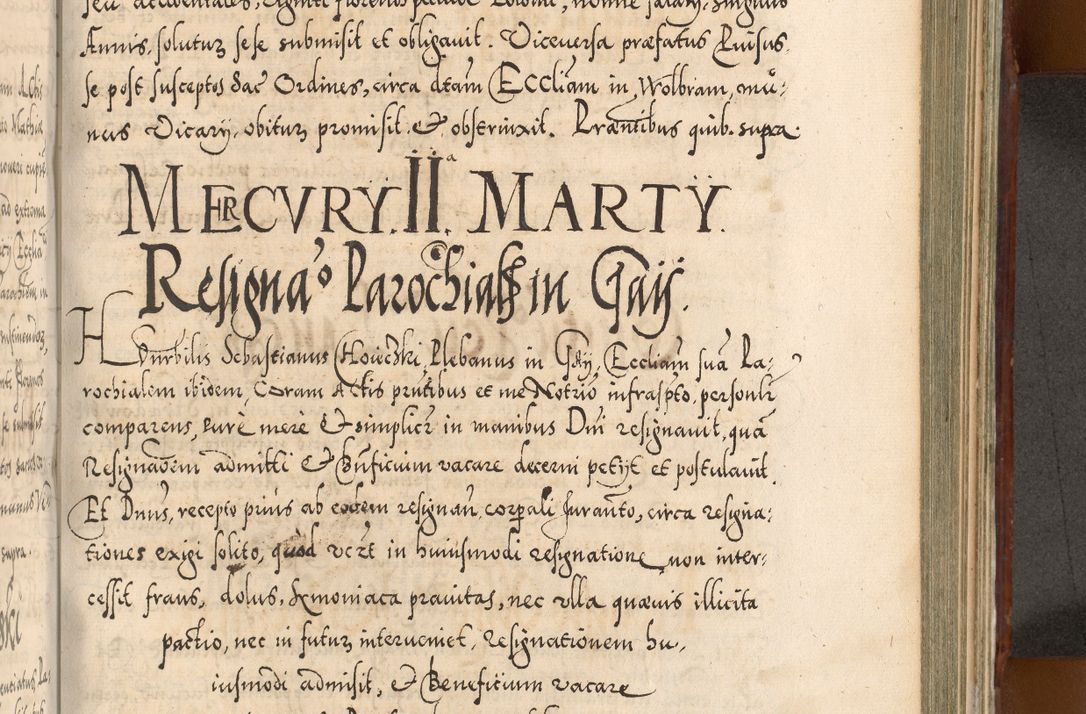 Annis, solutuȝ sese submisit et obligauit. Viceuersa præfatus Luisus,
se post susceptos Sac Ordines, circa dtam Eccliam in Wolbram, mu-
neus Vicarÿ, obituȝ promisit & obstrinxit. Præntibus quib. supra
MERCVRY. II.a MARTŸ.
Resigna:o Parochialis in Gaÿ.
Honurbilis Sebastianus Choieczki, Plebanus in Gaÿ, Eccliam sua Pa-
rochialem ibidem, Coram Actis prntibus et me Notrio infraspto, personlr
comparens, pure mere & simplicr in manibus Dni resignauit, qua
Resignaoem admitti & Bnficium vacare decerni petijt et postulauit.
Et Dnus, recepto prius ab eodem resignan, corpali Iuranto, circa resigna-
tiones exigi solito, quod vczt in huiusmodi resignatione non inter-
cessit fraus, dolus, Symoniaca prauitas, nec vlla quæuis illicita
pactio, nec in futuȝ interueniet, resignationem hu-
iusmodi admisit, & Beneficium vacare